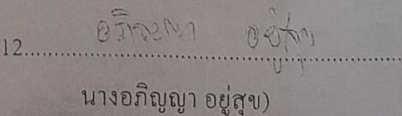 อภิญญา อยู่สุข
12...........................................................
นางอภิญญา อยู่สุข)